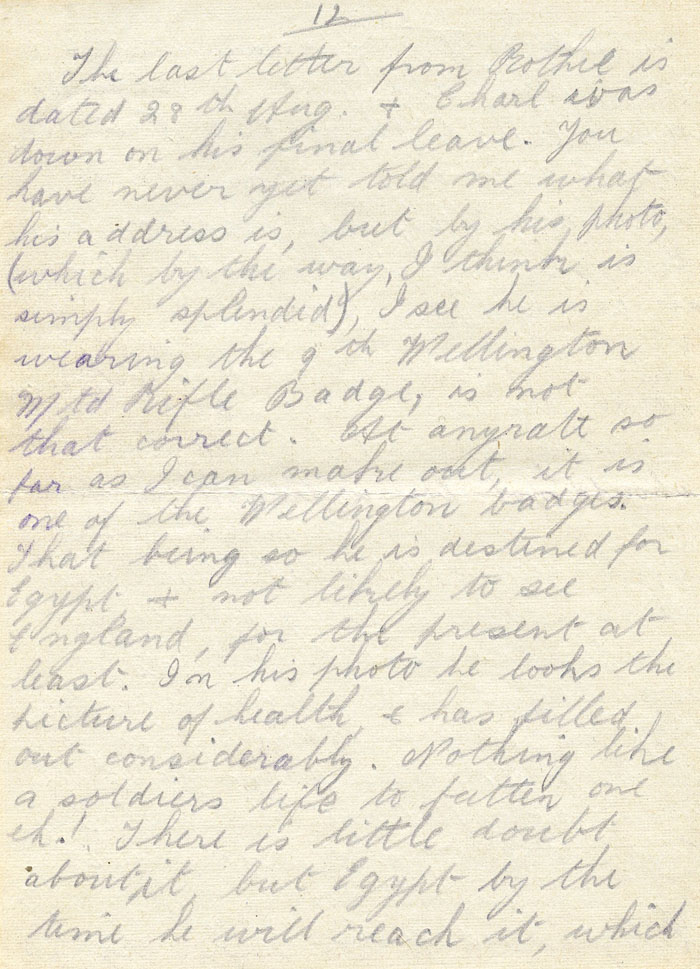 12
The last letter from Rothie is
dated 28th Aug. + Charl was
down on his final leave. You
have never yet told me what
his address is, but by his photo,
(which by the way, I think is
simply splendid), I see he is
wearing the 9th Wellington
Mtd Rifle Badge, is not
that correct. At anyratt so
far as I can make out, it is
one of the Wellington badges.
That being so he is destined for
Egypt + not likely to see
England, for the present at
least. In his photo he looks the
picture of health, & has filled
out considerably. Nothing like
a soldiers life to fatten one
eh! There is little doubt
about it, but Egypt by the
time he will reach it, which